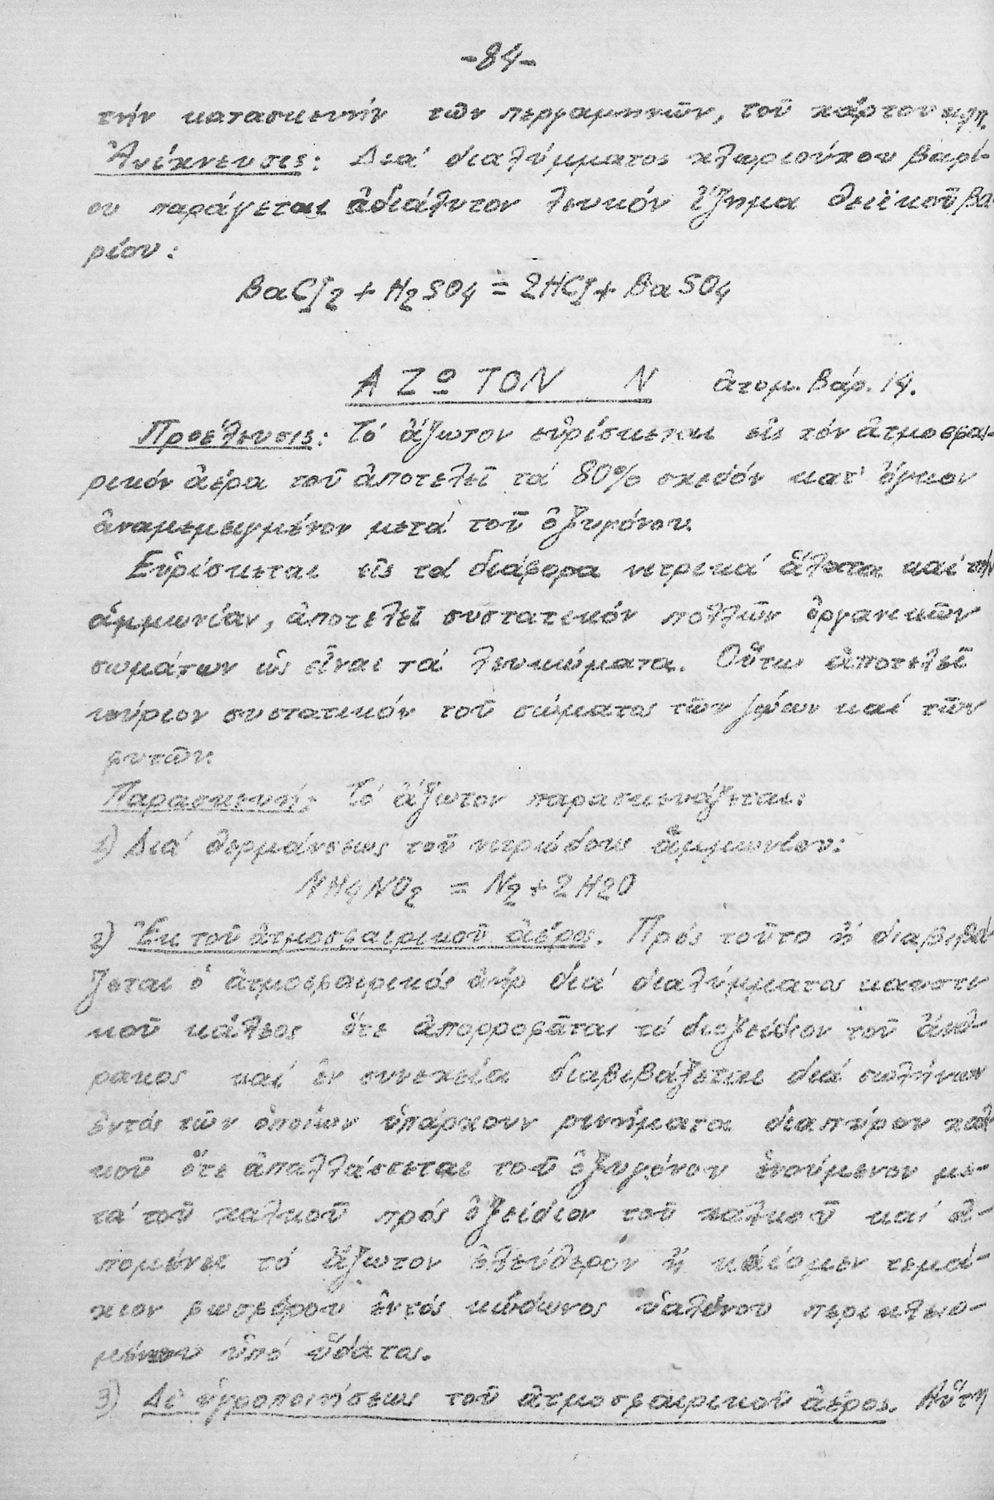 -84-
τήν κατασκευήν τῶν περγαμηνῶν, τοῦ χάρτου κ.λ.π.
Ἀνίχνευσις: Διά διαλύμματος χλωριούχου βαρί-
ου παράγεται ἀδιάλυτον λευκόν ἵζημα θειϊκοῦ βα-
ρίου:
BaCl2 + H2SO4 = 2HCl + BaSO4
ΑΖΩΤΟΝ N ἀτομ. βάρ. 14.
Προέλευσις: Τό ἄζωτον εὑρίσκεται εἰς τόν ἀτμοσφαι-
ρικόν ἀέρα τοῦ ἀποτελεῖ τά 80% σχεδόν κατ' ὄγκον
ἀναμεμειγμένον μετά τοῦ ὀξυγόνου.
Εὑρίσκεται εἰς τά διάφορα νιτρικά ἅλατα καί τήν
ἀμμωνίαν, ἀποτελεῖ συστατικόν πολλῶν ὀργανικῶν
σωμάτων ὡς εἶναι τά λευκώματα. Οὕτω ἀποτελεῖ
κύριον συστατικόν τοῦ σώματος τῶν ζώων καί τῶν
φυτῶν.
Παρασκευή: Τό ἄζωτον παρασκευάζεται:
1) Διά θερμάνσεως τοῦ νιτρώδους ἀμμωνίου:
NH4NO2 = N2 + 2H2O
2) Ἐκ τοῦ ἀτμοσφαιρικοῦ ἀέρος. Πρός τοῦτο ἤ διαβιβά-
ζεται ὁ ἀτμοσφαιρικός ἀήρ διά διαλύμματος καυστι
κοῦ κάλεος ὅτε ἀπορροφᾶται τό διοξείδιον τοῦ ἄνθ-
ρακος καί ἐν συνεχεία διαβιβάζεται διά σωλήνων
ἐντός τῶν ὁποίων ὑπάρχουν ρινήματα διαπύρου χαλ
κοῦ ὅτε ἀπαλλάσσεται τοῦ ὀξυγόνου ἑνούμενον με-
τά τοῦ χαλκοῦ πρός ὀξείδιον τοῦ χαλκοῦ καί ἑ-
πομένως τό ἄζωτον ἐλεύθερον ἤ καίομεν τεμά-
χιον φωσφόρου ἐντός κώδωνος ὑαλίνου περικλειο-
μένου ὑπό ὕδατος.
3) Δι' ὑγροποιήσεως τοῦ ἀτμοσφαιρικοῦ ἀέρος. Αὕτη